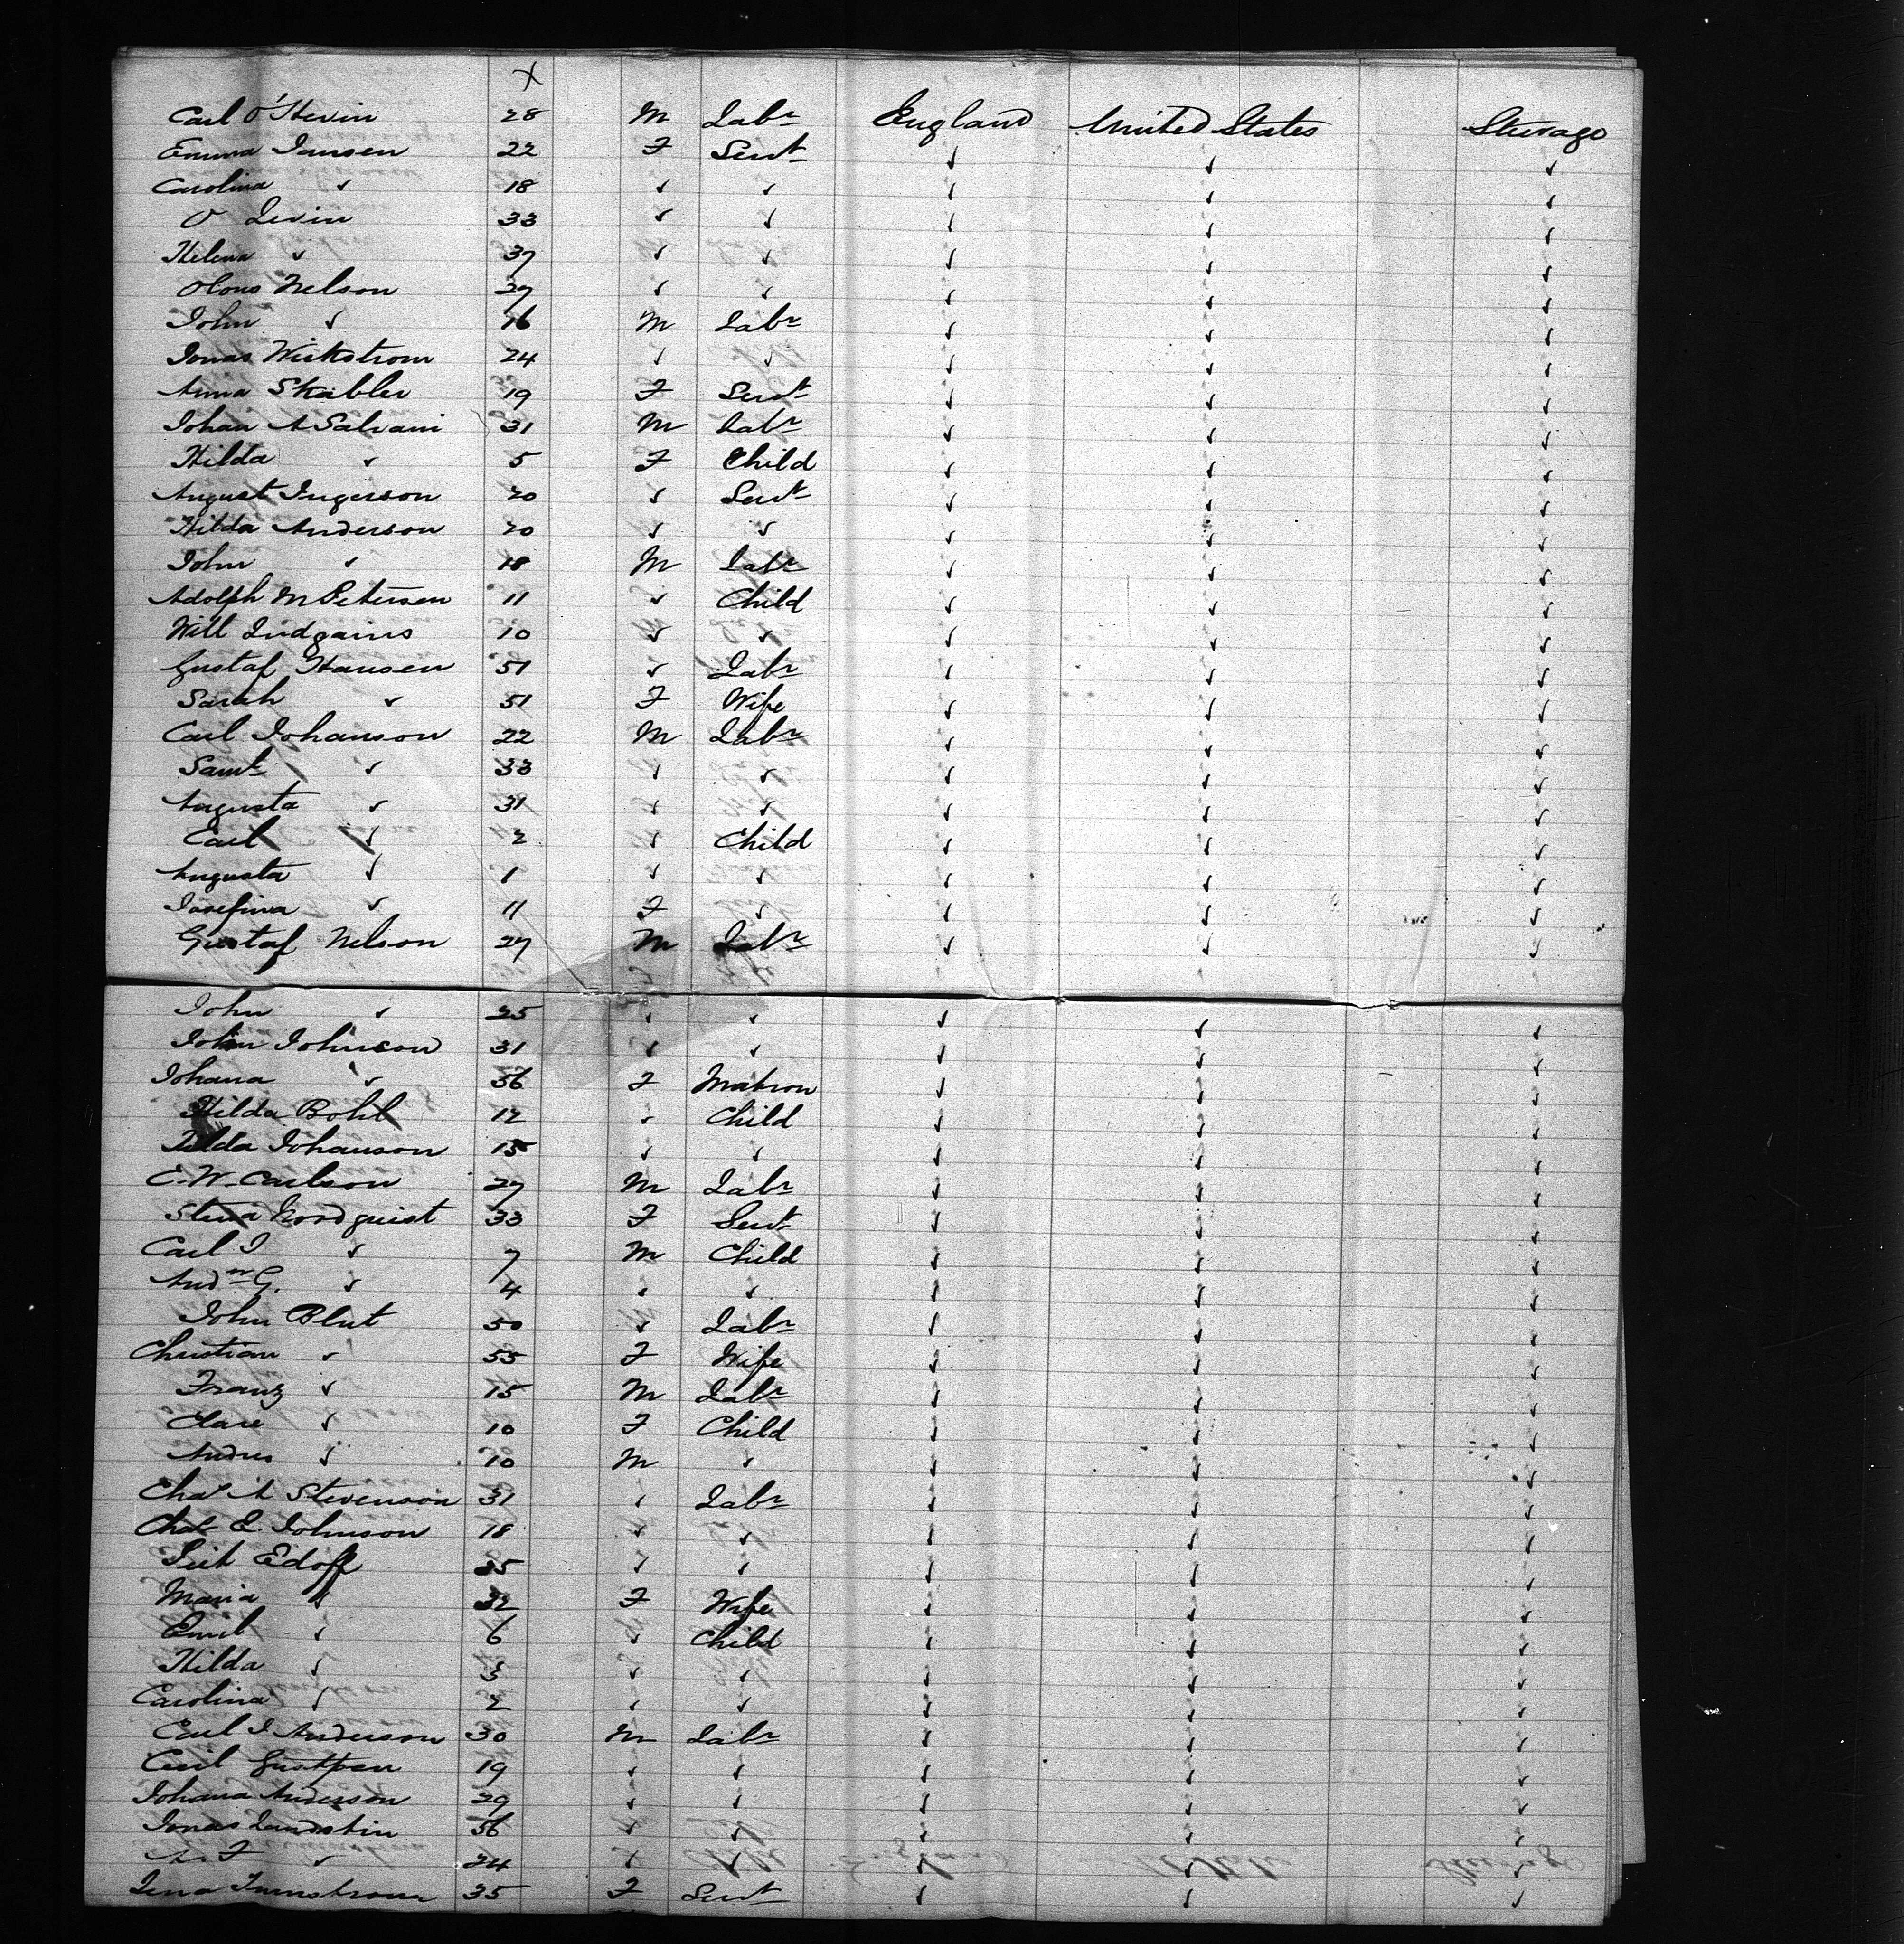 x
Carl O'Hevin 28 M Labr England United States Steerage
Emma Jansen 22 F Servt ✓ ✓ ✓
Carolina ✓ 18 ✓ ✓ ✓ ✓ ✓
O Levin 33 ✓ ✓ ✓ ✓ ✓
Helena ✓ 37 ✓ ✓ ✓ ✓ ✓
Nelson 27 ✓ ✓ ✓ ✓ ✓
John ✓ 16 M Labr ✓ ✓ ✓
Jonas Wickstrom 24 ✓ ✓ ✓ ✓ ✓
Anna Stabler 19 F Servt ✓ ✓ ✓
Johan A Salvani 31 M Labr ✓ ✓ ✓
Hilda ✓ 5 F Child ✓ ✓ ✓
August Ingerson 20 ✓ Servt ✓ ✓ ✓
Hilda Anderson 20 ✓ ✓ ✓ ✓ ✓
John ✓ 18 M Labr ✓ ✓ ✓
Adolph M Petersen 11 ✓ Child ✓ ✓ ✓
Will 10 ✓ ✓ ✓ ✓ ✓
Gustaf Hansen 51 ✓ Labr ✓ ✓ ✓
Sarah ✓ 51 F Wife ✓ ✓ ✓
Carl Johanson 22 M Labr ✓ ✓ ✓
Saml ✓ 33 ✓ ✓ ✓ ✓ ✓
Augusta ✓ 31 ✓ ✓ ✓ ✓ ✓
Carl ✓ 2 ✓ Child ✓ ✓ ✓
Augusta ✓ 1 ✓ ✓ ✓ ✓ ✓
Josefina ✓ 11 F ✓ ✓ ✓ ✓
Gustaf Nelson 27 M Labr ✓ ✓ ✓
John ✓ 25 ✓ ✓ ✓ ✓ ✓
John Johnson 31 ✓ ✓ ✓ ✓ ✓
Johana ✓ 56 F Matron ✓ ✓ ✓
Hilda Bohl 12 ✓ Child ✓ ✓ ✓
Tilda Johanson 15 ✓ ✓ ✓ ✓ ✓
C. W. Carlson 27 M Labr ✓ ✓ ✓
Stena Nordquist 33 F Servt ✓ ✓ ✓
Carl J ✓ 7 M Child ✓ ✓ ✓
Andw G. ✓ 4 ✓ ✓ ✓ ✓ ✓
John Blut 50 ✓ Labr ✓ ✓ ✓
Christian ✓ 55 F Wife ✓ ✓ ✓
Franz ✓ 15 M Labr ✓ ✓ ✓
Clare ✓ 10 F Child ✓ ✓ ✓
Andres ✓ 10 M ✓ ✓ ✓ ✓
Chas A Stevenson 31 ✓ Labr ✓ ✓ ✓
Chas E. Johnson 18 ✓ ✓ ✓ ✓ ✓
Edoff 35 ✓ ✓ ✓ ✓ ✓
Maria ✓ 32 F Wife ✓ ✓ ✓
Emil ✓ 6 ✓ Child ✓ ✓ ✓
Hilda ✓ 3 ✓ ✓ ✓ ✓ ✓
Carolina ✓ 2 ✓ ✓ ✓ ✓ ✓
Carl J Anderson 30 M Labr ✓ ✓ ✓
Carl 19 ✓ ✓ ✓ ✓ ✓
Johana Anderson 29 ✓ ✓ ✓ ✓ ✓
Jonas 56 ✓ ✓ ✓ ✓ ✓
A. F ✓ 24 ✓ ✓ ✓ ✓ ✓
Lena 35 F Servt ✓ ✓ ✓